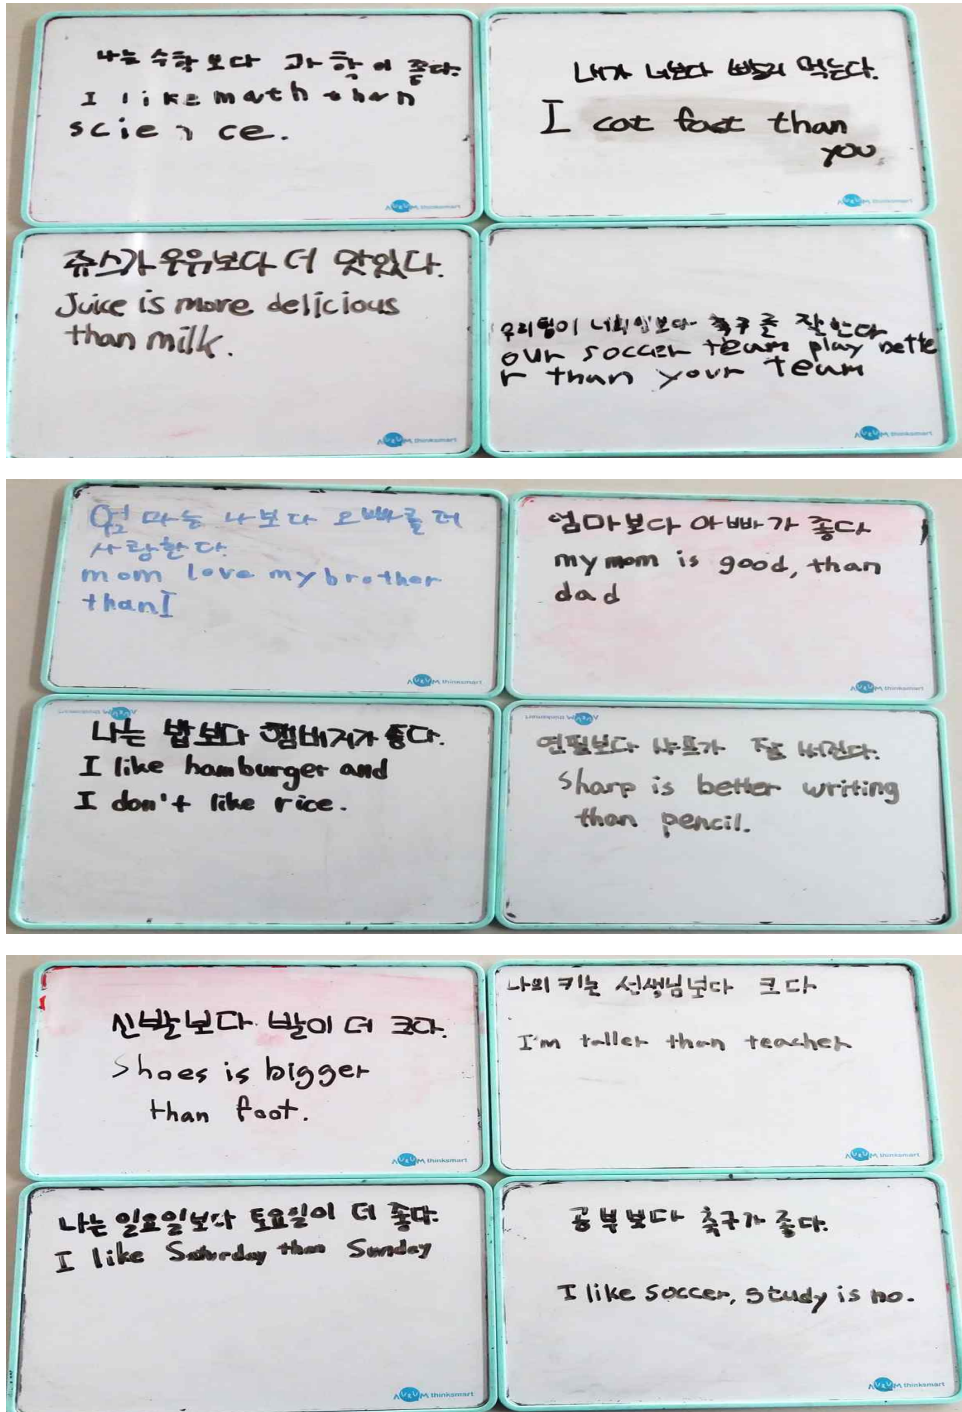 나는 수학보다 과학이 좋다.
I like math than
science.
AURUM thinksmart
내가 너보다 빨리 먹는다.
I eat fast than
you.
AURUM thinksmart
쥬스가 우유보다 더 맛있다.
Juice is more delicious
than milk.
AURUM thinksmart
우리팀이 너희팀보다 축구를 잘한다
our soccer team play bette
r than your team
AURUM thinksmart
엄마는 나보다 오빠를 더
사랑한다.
mom love my brother
than I
AURUM thinksmart
엄마보다 아빠가 좋다
my mom is good, than
dad
AURUM thinksmart
AURUM thinksmart
나는 밥보다 햄버거가 좋다.
I like hamburger and
I don't like rice.
AURUM thinksmart
연필보다 샤프가 잘 써진다.
Sharp is better writing
than pencil.
신발보다 발이 더 크다.
Shoes is bigger
than foot.
AURUM thinksmart
나의 키는 선생님보다 크다
I'm taller than teacher
AURUM thinksmart
나는 일요일보다 토요일이 더 좋다.
I like Saturday than Sunday
AURUM thinksmart
공부보다 축구가 좋다.
I like soccer, study is no.
AURUM thinksmart